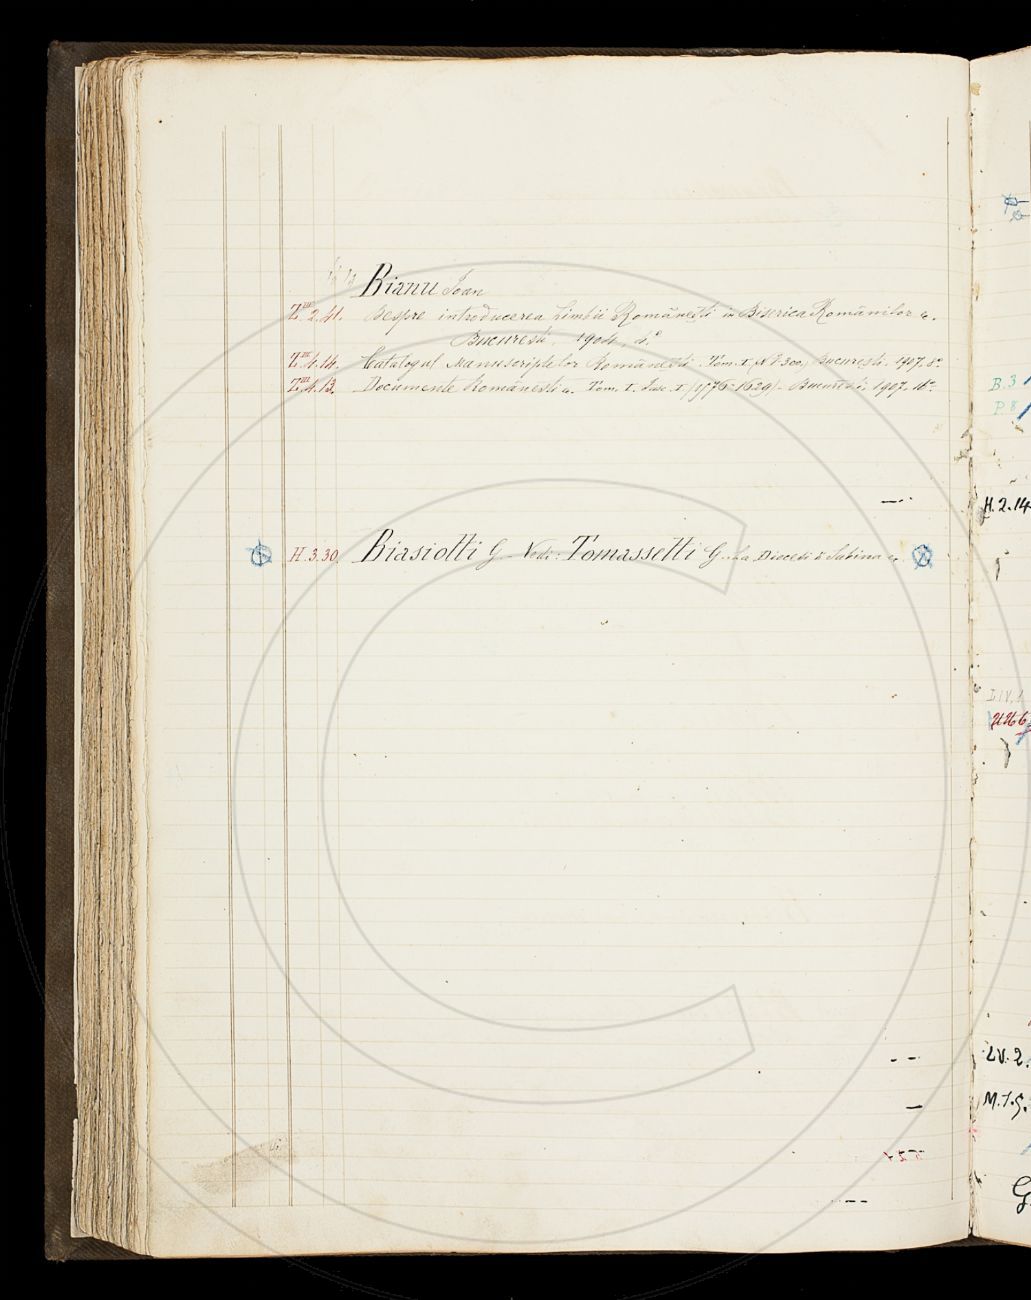 Bianu Ioan
Z.III.2.41. Despre introducerea Limbii Românești in Biserica Românilor &.
Bucuresti. 1904. 4.°
Z.III.4.14. Catalogul Manuscriptelor Românesti. Tom. I. (N° 1-300) Bucuresti. 1907. 8°.
Z.III.4.13. Documente Românesti &. Tom. I. Fasc. I (1576-1629) - Bucuresti. 1907. 16°.
H.3.30. Biasiotti G. Vedi: Tomassetti G. La Diocesi di Sabina &.
B.3
P.8
H.2.14
LV.2.
M.7.9.